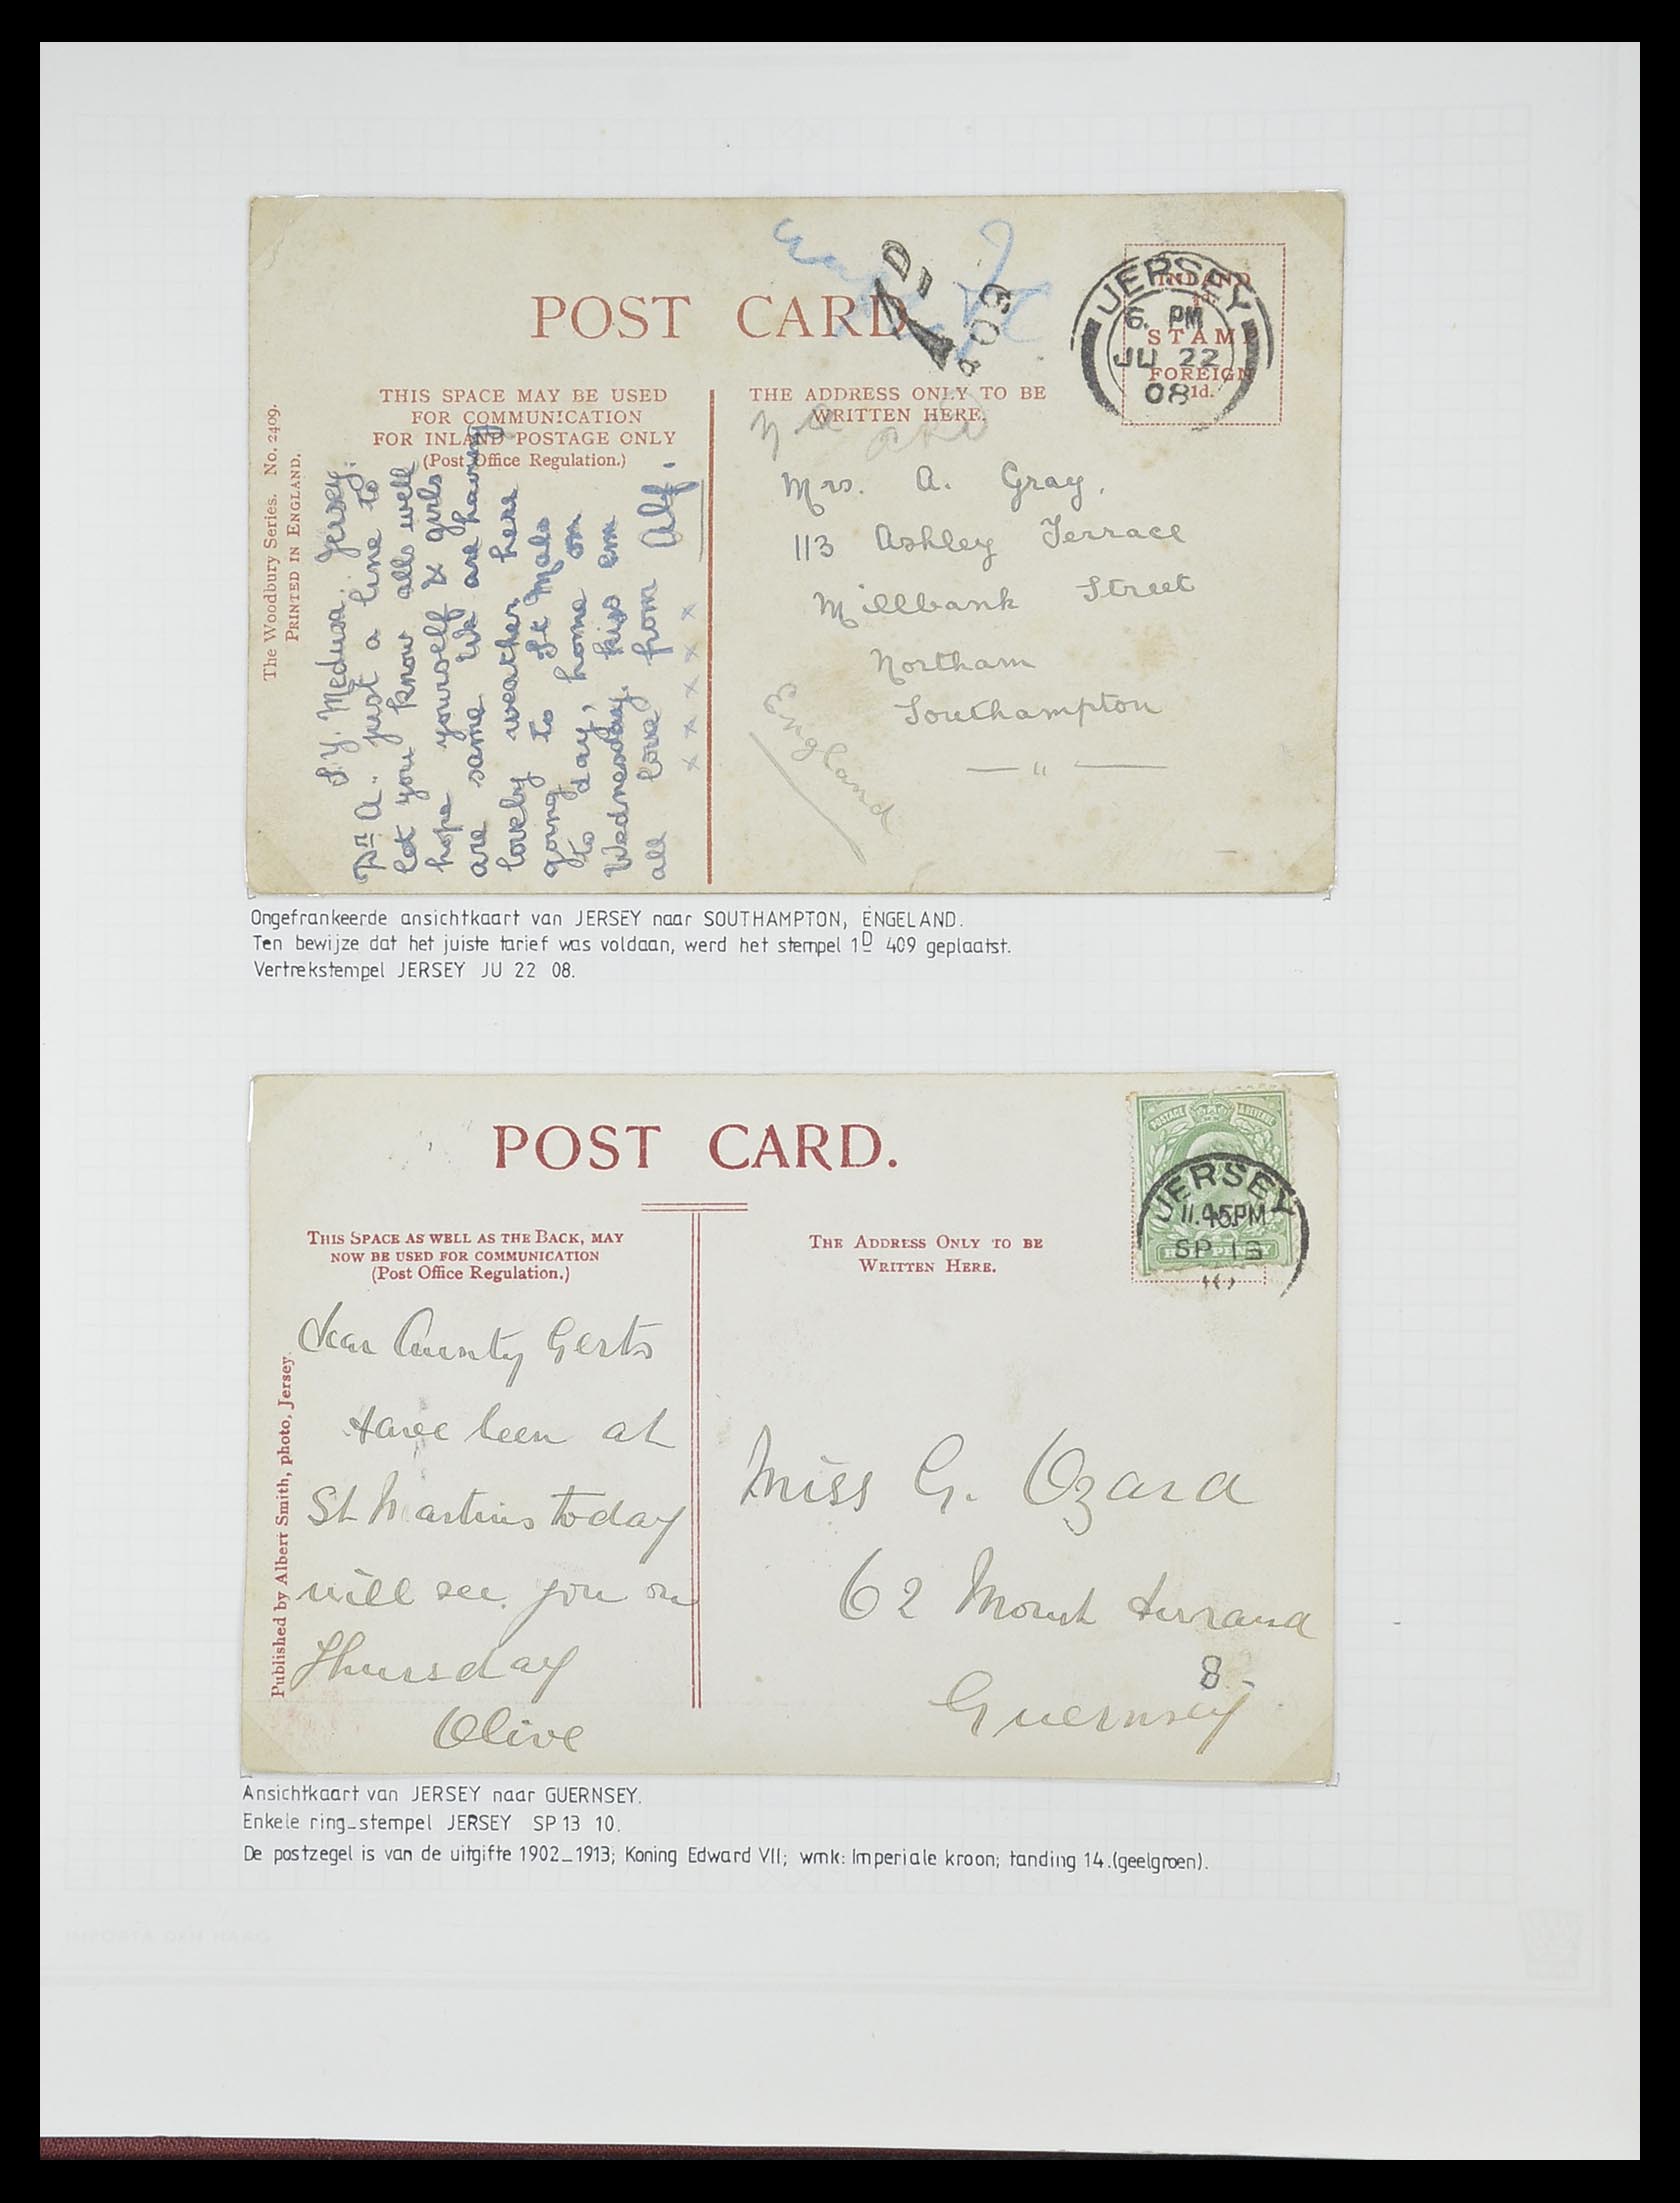 POST CARD
THIS SPACE MAY BE USED
FOR COMMUNICATION
FOR INLAND POSTAGE ONLY
(Post Office Regulation.)
THE ADDRESS ONLY TO BE
WRITTEN HERE.
INLAND
STAMP
FOREIGN
1d.
JERSEY
6. PM
JU 22
08
1D
409
The Woodbury Series. No. 2409.
PRINTED IN ENGLAND.
S.Y. Medusa. Jersey.
Dr A. just a line to
let you know alls well
hope yourself & girls
are same We are having
lovely weather here
going to St Malo
to day, home on
Wednesday. kiss em
all love from Alf.
x x x x x
Mrs. A. Gray,
113 Ashley Terrace
Millbank Street
Northam
Southampton
England
Ongefrankeerde ansichtkaart van JERSEY naar SOUTHAMPTON, ENGELAND.
Ten bewijze dat het juiste tarief was voldaan, werd het stempel 1D 409 geplaatst.
Vertrekstempel JERSEY JU 22 08.
POST CARD.
THIS SPACE AS WELL AS THE BACK, MAY
NOW BE USED FOR COMMUNICATION
(Post Office Regulation.)
THE ADDRESS ONLY TO BE
WRITTEN HERE.
POSTAGE & REVENUE
HALFPENNY
JERSEY
11.45PM
SP 13
10
Published by Albert Smith, photo, Jersey.
Dear Aunty Gerts
Have been at
St Martins today
will see you on
Thursday
Olive
Miss G. Ozard
62 Mount Durand
8
Guernsey
Ansichtkaart van JERSEY naar GUERNSEY.
Enkele ring-stempel JERSEY SP 13 10.
De postzegel is van de uitgifte 1902-1913; Koning Edward VII; wmk: Imperiale kroon; tanding 14.(geelgroen).